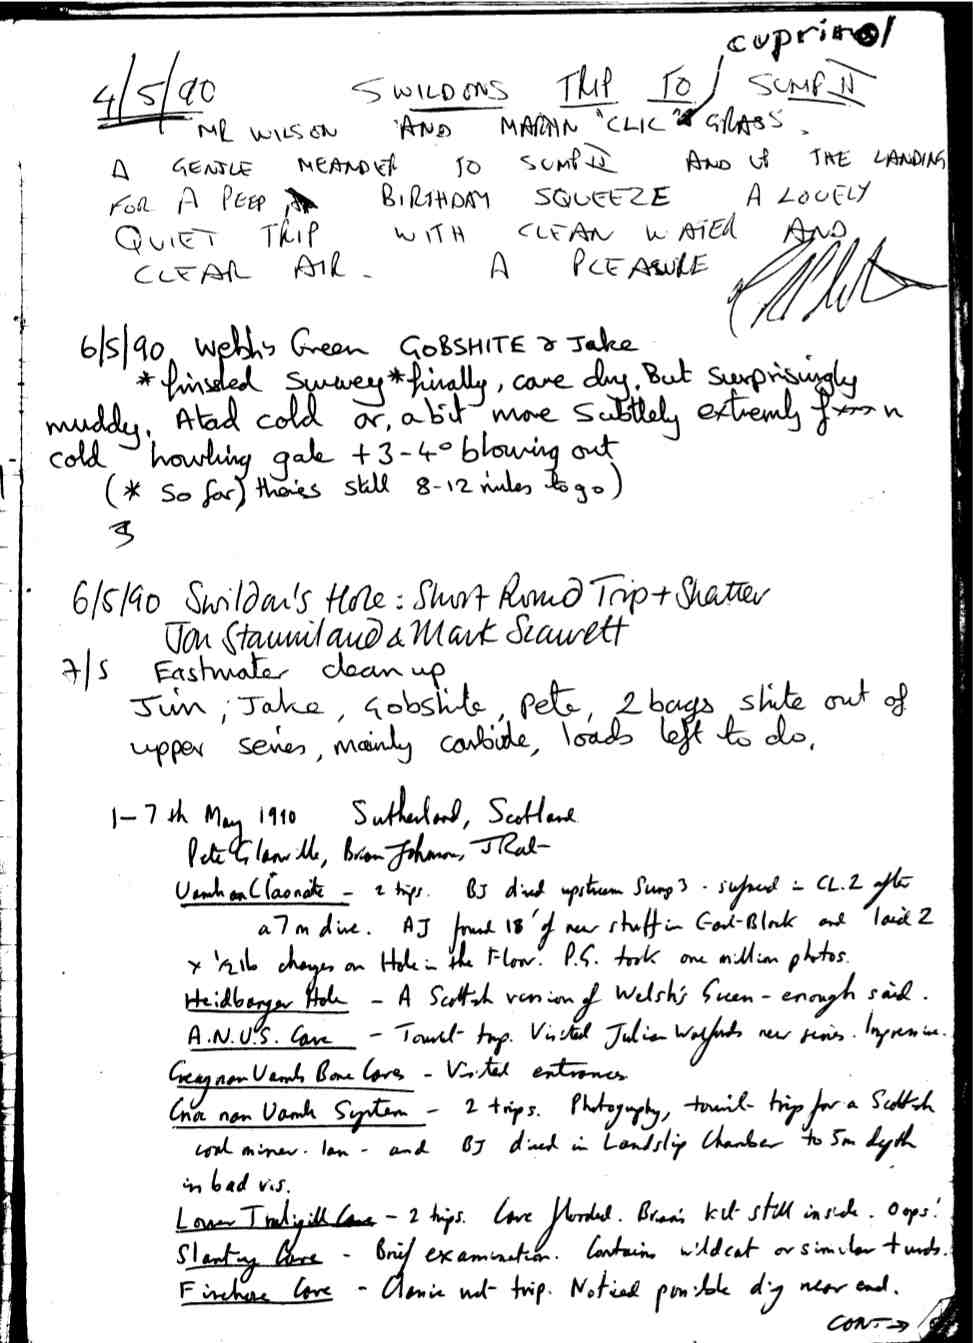 cuprinol
4/5/90 SWILDONS TRIP TO SUMP II
MR WILSON AND MARTIN "CLIC" GRASS.
A GENTLE MEANDER TO SUMP II AND UP THE LANDING
FOR A PEEP BIRTHDAY SQUEEZE A LOVELY
QUIET TRIP WITH CLEAN WATER AND
CLEAR AIR. A PLEASURE
6/5/90 Welsh's Green GOBSHITE & Jake
*finished survey* finally, cave dry. But surprisingly
muddy. A tad cold or, a bit more subtlely extremely
cold howling gale + 3-4° blowing out
(* So far) there's still 8-12 miles to go)
6/5/90 Swildon's Hole: Short Round Trip + Shatter
Jon Stanniland & Mark
7/5 Eastwater clean up
Jim, Jake, Gobshite, Pete, 2 bags shite out of
upper series, mainly carbide, loads left to do.
1-7th May 1990 Sutherland, Scotland
Pete Glanville, Brian Johnson, J Rat
Uamh an Claonaite - 2 trips. BJ dived upstream Sump 3 - surfaced in CL.2 after
a 7 m dive. AJ found 18' of new stuff in and laid 2
x 1/2 lb charges on Hole in the Floor. P.G. took one million photos.
Heidbanger Hole - A Scottish version of Welsh's Green - enough said.
A.N.U.S. Cave - Tourist trip. Visited Julian Walfords new series. Impressive.
Creag nan Uamh Bone Caves - Visited entrances
Cnoc nan Uamh System - 2 trips. Photography, tourist trip for a Scottish
coal miner - Ian - and BJ dived in Landslip Chamber to 5m depth
in bad vis.
Lower Traligill Cave - 2 trips. Cave flooded. Brian's kit still inside. Oops!
Slanting Cave - Brief examination. Contains wildcat or similar + turds.
Firehose Cave - Classic wet trip. Noticed possible dig near end.
CONT →